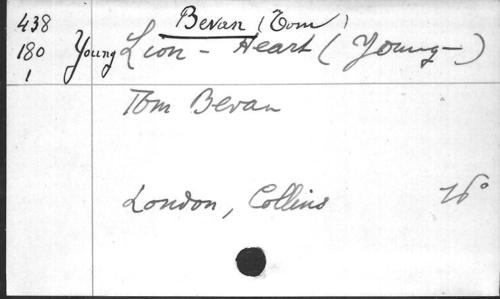 438 Bevan (Tom)
180 Young Lion - Heart (Young -)
1
Tom Bevan
London, Collins 16°